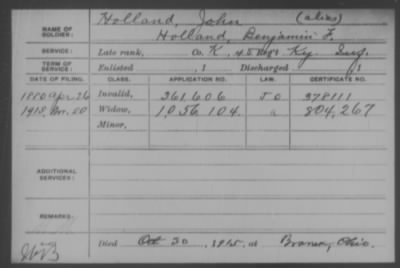 Holland, John (alias)
NAME OF SOLDIER: Holland, Benjamin F.
SERVICE: Late rank, Co. K, 45 Reg't Ky. Inf.
TERM OF SERVICE: Enlisted , 1 Discharged , 1
DATE OF FILING. CLASS. APPLICATION NO. LAW. CERTIFICATE NO.
1880 Apr. 26 Invalid, 361.606 378111
1915, Nov. 20 Widow, 1,056 104. 804,267
Minor,
ADDITIONAL SERVICES:
REMARKS:
Died Oct 30, 1915, at Ohio.